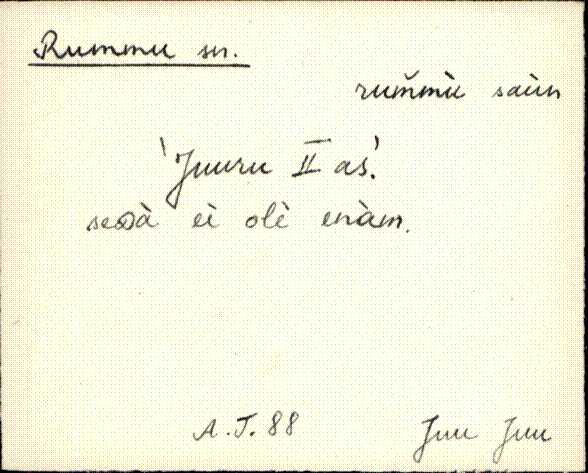 Rummu sn.
rum̆mù saùn
'Juuru II as'.
seᴅà ei olè enàm.
A.T. 88 Juu Juu